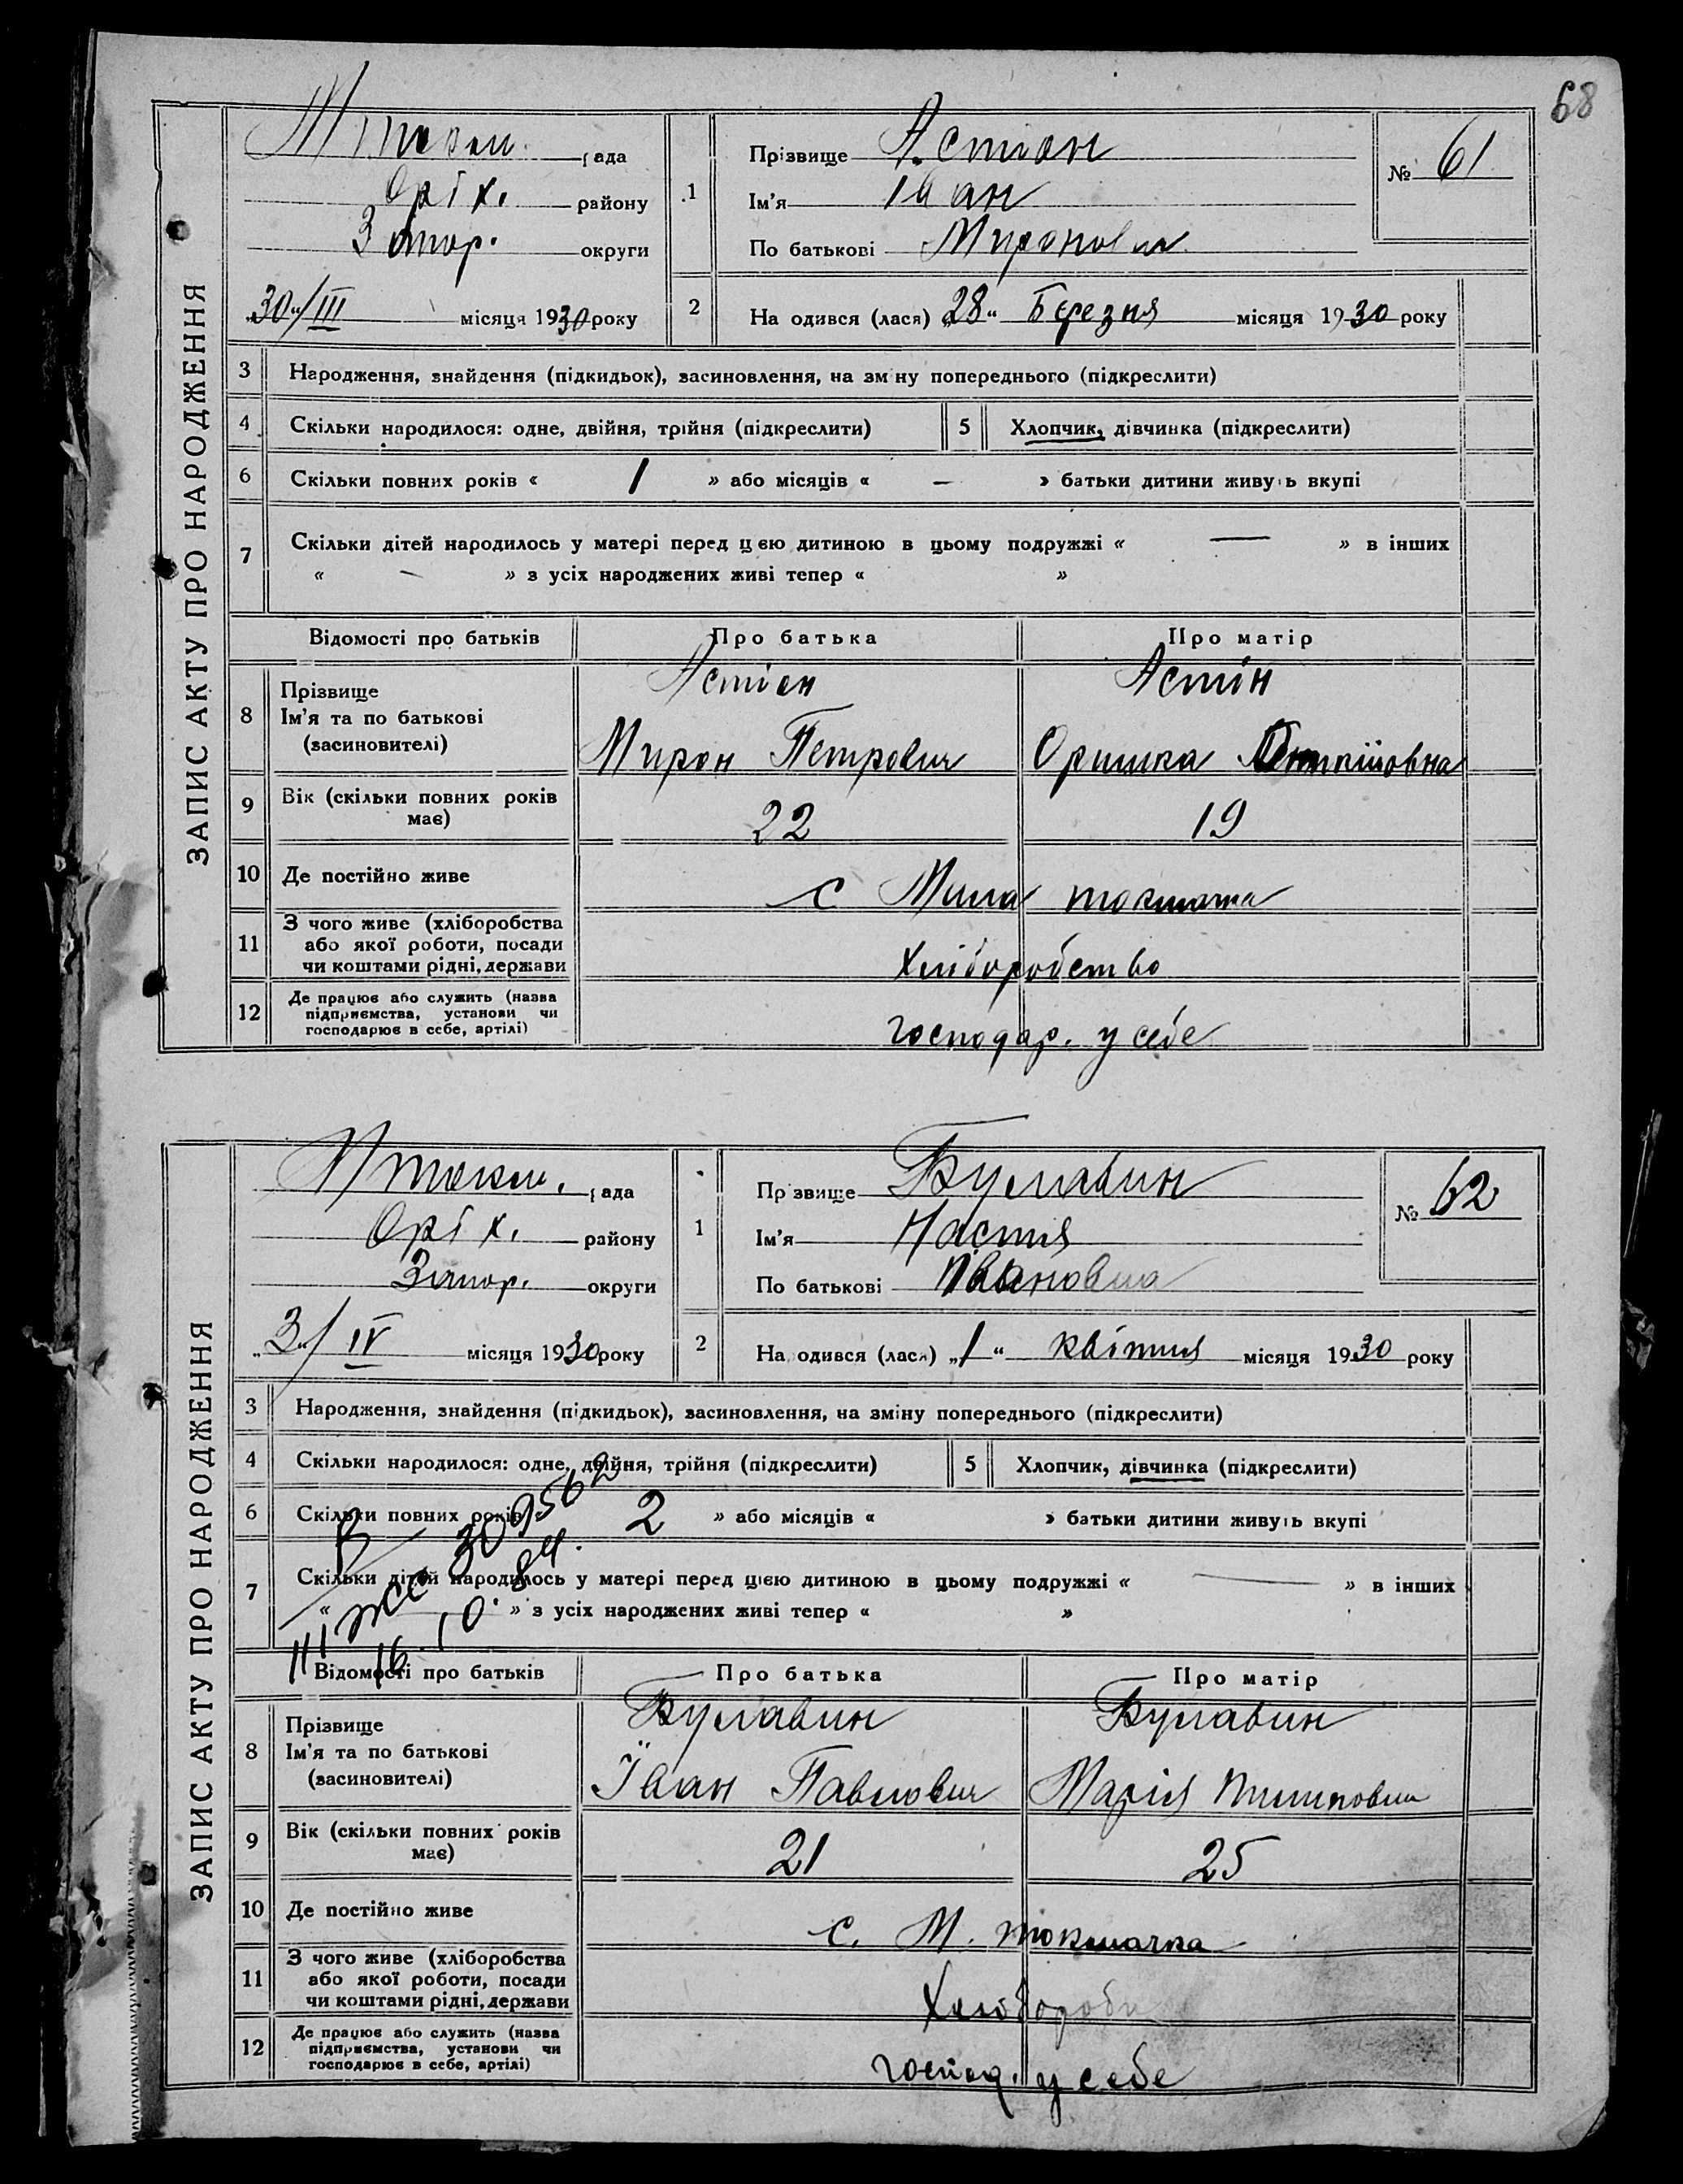 68
ЗАПИС АКТУ ПРО НАРОДЖЕННЯ
М токм. рада
Оріх. району
Запор. округи
„30“/III місяця 1930 року
1
Прізвище Астіон
Ім'я Іван
По батькові Миронович
№ 61
2 На одився (лася) „28“ Березня місяця 1930 року
3 Народження, знайдення (підкидьок), засиновлення, на зм ну попереднього (підкреслити)
4 Скільки народилося: одне, двійня, трійня (підкреслити) 5 Хлопчик, дівчинка (підкреслити)
6 Скільки повних років « 1 » або місяців « — » батьки дитини живуть вкупі
7 Скільки дітей народилось у матері перед цею дитиною в цьому подружжі « — » в інших
« — » з усіх народжених живі тепер « »
Відомості про батьків Про батька Про матір
8 Прізвище Астіон Астін
Ім'я та по батькові
(засиновителі) Мирон Петрович Оришка
9 Вік (скільки повних років має) 22 19
10 Де постійно живе с Мила токмачка
11 З чого живе (хліборобства
або якої роботи, посади
чи коштами рідні, держави Хліборобство
12 Де працює або служить (назва
підприємства, установи чи
господарює в себе, артілі) господар. у себе
ЗАПИС АКТУ ПРО НАРОДЖЕННЯ
М токм. рада
Оріх. району
Запор. округи
„3“/IV місяця 1930 року
1
Пр звище Булавин
Ім'я Настя
По батькові Івановна
№ 62
2 На одився (лася) „1“ квітня місяця 1930 року
3 Народження, знайдення (підкидьок), засиновлення, на зміну попереднього (підкреслити)
4 Скільки народилося: одне, двійня, трійня (підкреслити) 5 Хлопчик, дівчинка (підкреслити)
6 Скільки повних років 2 » або місяців « » батьки дитини живуть вкупі
7 Скільки дітей народилось у матері перед цією дитиною в цьому подружжі « — » в інших
« » з усіх народжених живі тепер « »
III 309562
16.10.84.
Відомості про батьків Про батька Про матір
8 Прізвище Булавин Булавин
Ім'я та по батькові
(засиновителі) Їван Павлович Марія Пилиповна
9 Вік (скільки повних років має) 21 25
10 Де постійно живе с. М. токмачка
11 З чого живе (хліборобства
або якої роботи, посади
чи коштами рідні, держави Хлібороби
12 Де працює або служить (назва
підприємства, установи чи
господарює в себе, артілі) господ. у себе